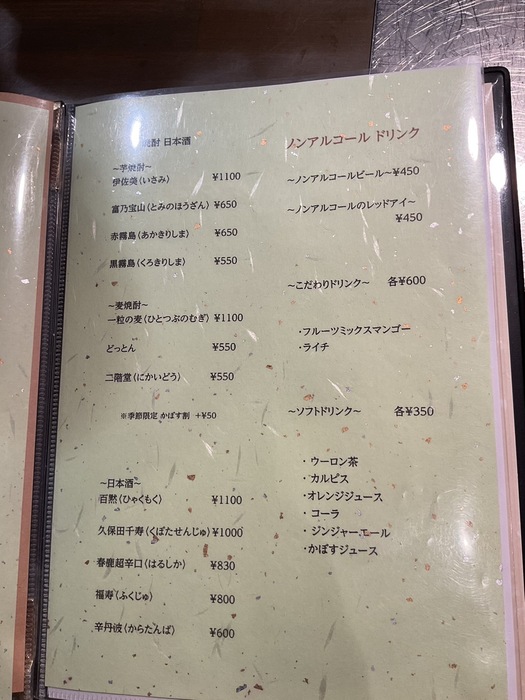 焼酎 日本酒
～芋焼酎～
伊佐美（いさみ） ¥1100
富乃宝山（とみのほうざん） ¥650
赤霧島（あかきりしま） ¥650
黒霧島（くろきりしま） ¥550
～麦焼酎～
一粒の麦（ひとつぶのむぎ） ¥1100
どっとん ¥550
二階堂（にかいどう） ¥550
※季節限定 かぼす割 +¥50
～日本酒～
百黙（ひゃくもく） ¥1100
久保田千寿（くぼたせんじゅ） ¥1000
春鹿超辛口（はるしか） ¥830
福寿（ふくじゅ） ¥800
辛丹波（からたんば） ¥600
ノンアルコール ドリンク
～ノンアルコールビール～ ¥450
～ノンアルコールのレッドアイ～
¥450
～こだわりドリンク～ 各¥600
・フルーツミックスマンゴー
・ライチ
～ソフトドリンク～ 各¥350
・ウーロン茶
・カルピス
・オレンジジュース
・コーラ
・ジンジャーエール
・かぼすジュース